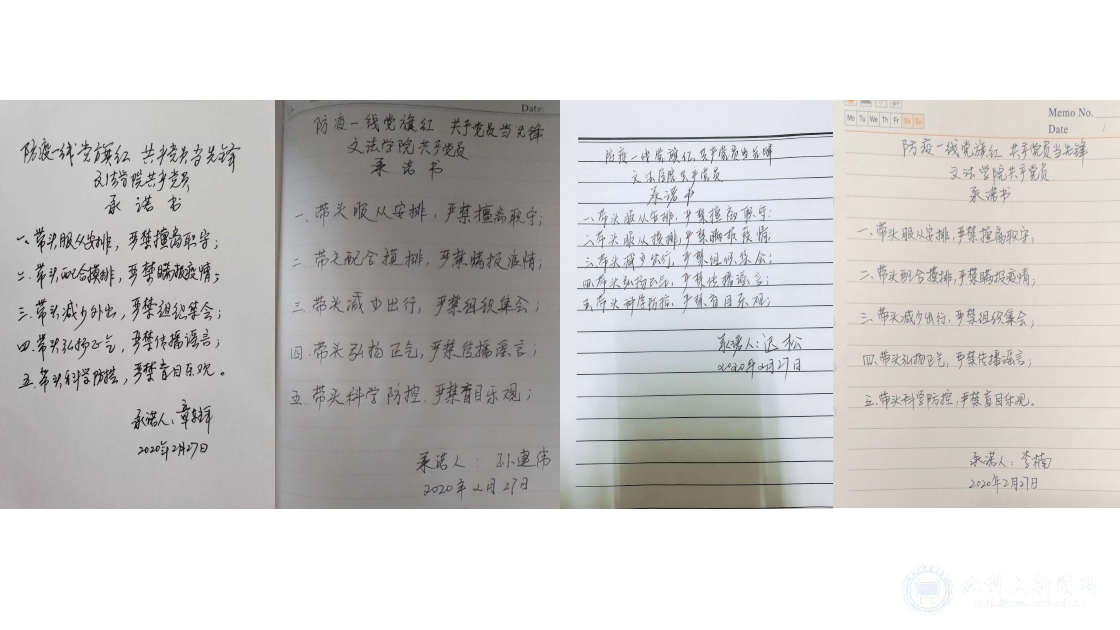 防疫一线党旗红 共产党员当先锋
文法学院共产党员
承诺书
一.带头服从安排,严禁擅离职守;
二.带头配合摸排,严禁瞒报疫情;
三.带头减少外出,严禁组织集会;
四.带头弘扬正气,严禁传播谣言;
五.带头科学防控,严禁盲目乐观。
承诺人:章
2020年2月27日
Date
防疫一线党旗红 共产党员当先锋
文法学院共产党员
承诺书
一、带头服从安排,严禁擅离职守;
二、带头配合摸排,严禁瞒报疫情;
三、带头减少出行,严禁组织集会;
四、带头弘扬正气,严禁传播谣言;
五、带头科学防控,严禁盲目乐观;
承诺人:孙建伟
2020年2月27日
防疫一线党旗红 共产党员当先锋
文法学院共产党员
承诺书
一.带头服从安排,严禁擅离职守;
二.带头服从摸排,严禁瞒报疫情;
三.带头减少出行,严禁组织集会;
四.带头弘扬正气,严禁传播谣言;
五.带头科学防控,严禁盲目乐观;
承诺人:迟松
2020年2月27日
Mo Tu We Th Fr Sa Su
Memo No.
Date
防疫一线党旗红 共产党员当先锋
文法学院共产党员
承诺书
一.带头服从安排,严禁擅离职守;
二.带头配合摸排,严禁瞒报疫情;
三.带头减少出行,严禁组织集会;
四.带头弘扬正气,严禁传播谣言;
五.带头科学防控,严禁盲目乐观。
承诺人:李楠
2020年2月27日
北科大新闻网